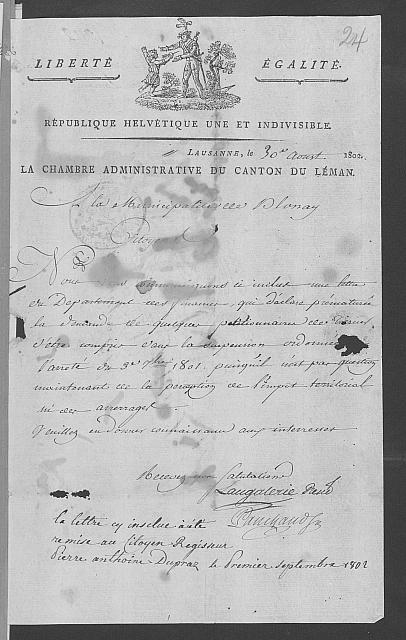 24
LIBERTÉ ÉGALITÉ.
RÉPUBLIQUE HELVÉTIQUE UNE ET INDIVISIBLE.
LAUSANNE, le 30e Aoust 1802.
LA CHAMBRE ADMINISTRATIVE DU CANTON DU LÉMAN.
A la Municipalité de Blonay
Citoyens
Nous vous communiquons ci inclus une lettre
du Departement des finances, qui declare prématurée
la demande de quelques petitionnaires de
votre commune dans la suspension ordonnée
l'arreté du 3e 1801. puisqu'il n'est pas question
maintenant de la perception de l'impot territorial
ni des arrerages.
Veuillez en donner connaissance aux interresses
Recevez nos salutations
la lettre cy inscluse a été
remise au Citoyen Regisseur
Pierre anthoine Dupraz le Premier septembre 1802